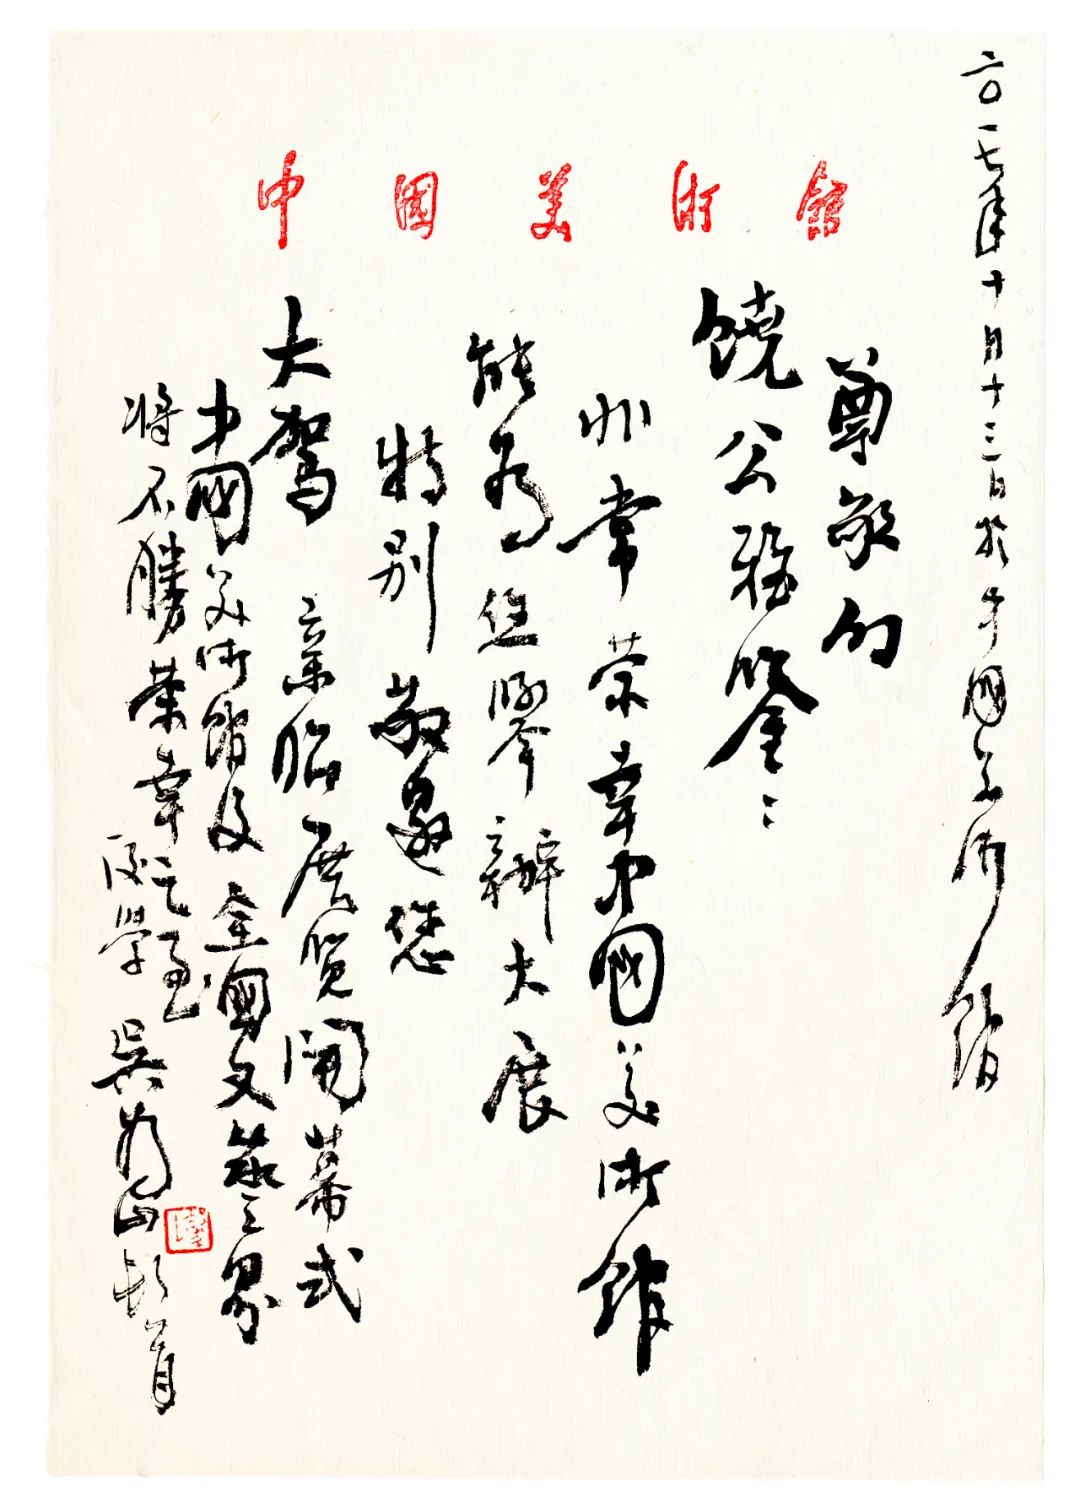 中國美術館
二〇一七年十月十三日於中國美術館
尊敬的
饶公雅鑒：
非常荣幸中國美術館
能为您舉辦大展
特别敬邀您
大駕親臨展覽開幕式
中國美術館及全國文藝界
將不勝荣幸之至
後學吳为山頓首